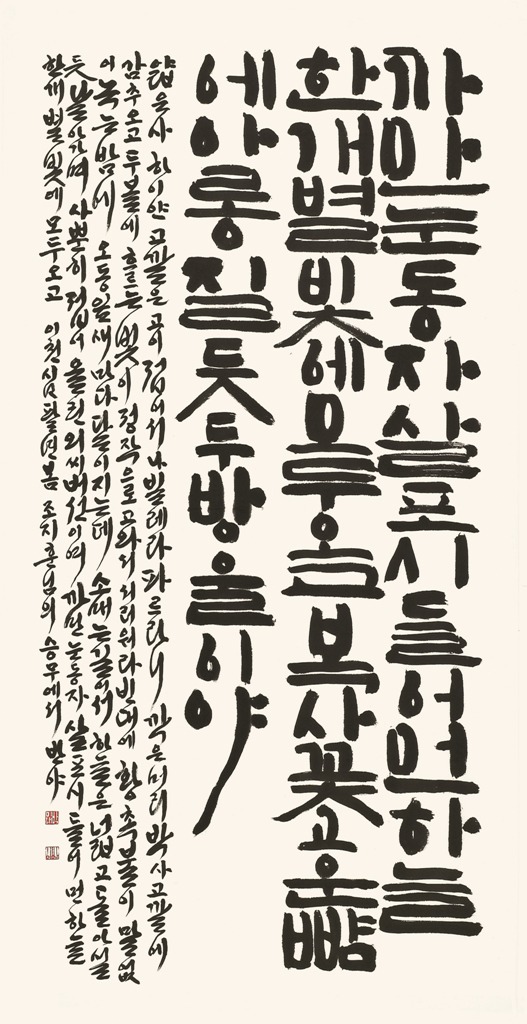 까만눈동자살포시들어먼하늘
한개별빛에모두오고복사꽃고운뺨
에아롱질듯두방울이야
얇은사 하이얀 고깔은 고이 접어서 나빌레라 파르라니 깎은머리 박사고깔에
감추오고 두볼에 흐르는 빛이 정작으로 고와서 서러워라 빈대에 황촉불이 말없
이 녹는밤에 오동잎새마다 달이지는데 소매는길어서 하늘은 넓고 돌아설
듯 날아가며 사뿐히 접어 올린 외씨버선이여 까만눈동자 살포시 들어 먼하늘
한개 별빛에 모두오고 이천십팔년봄 조지훈님의 승무에서 반야